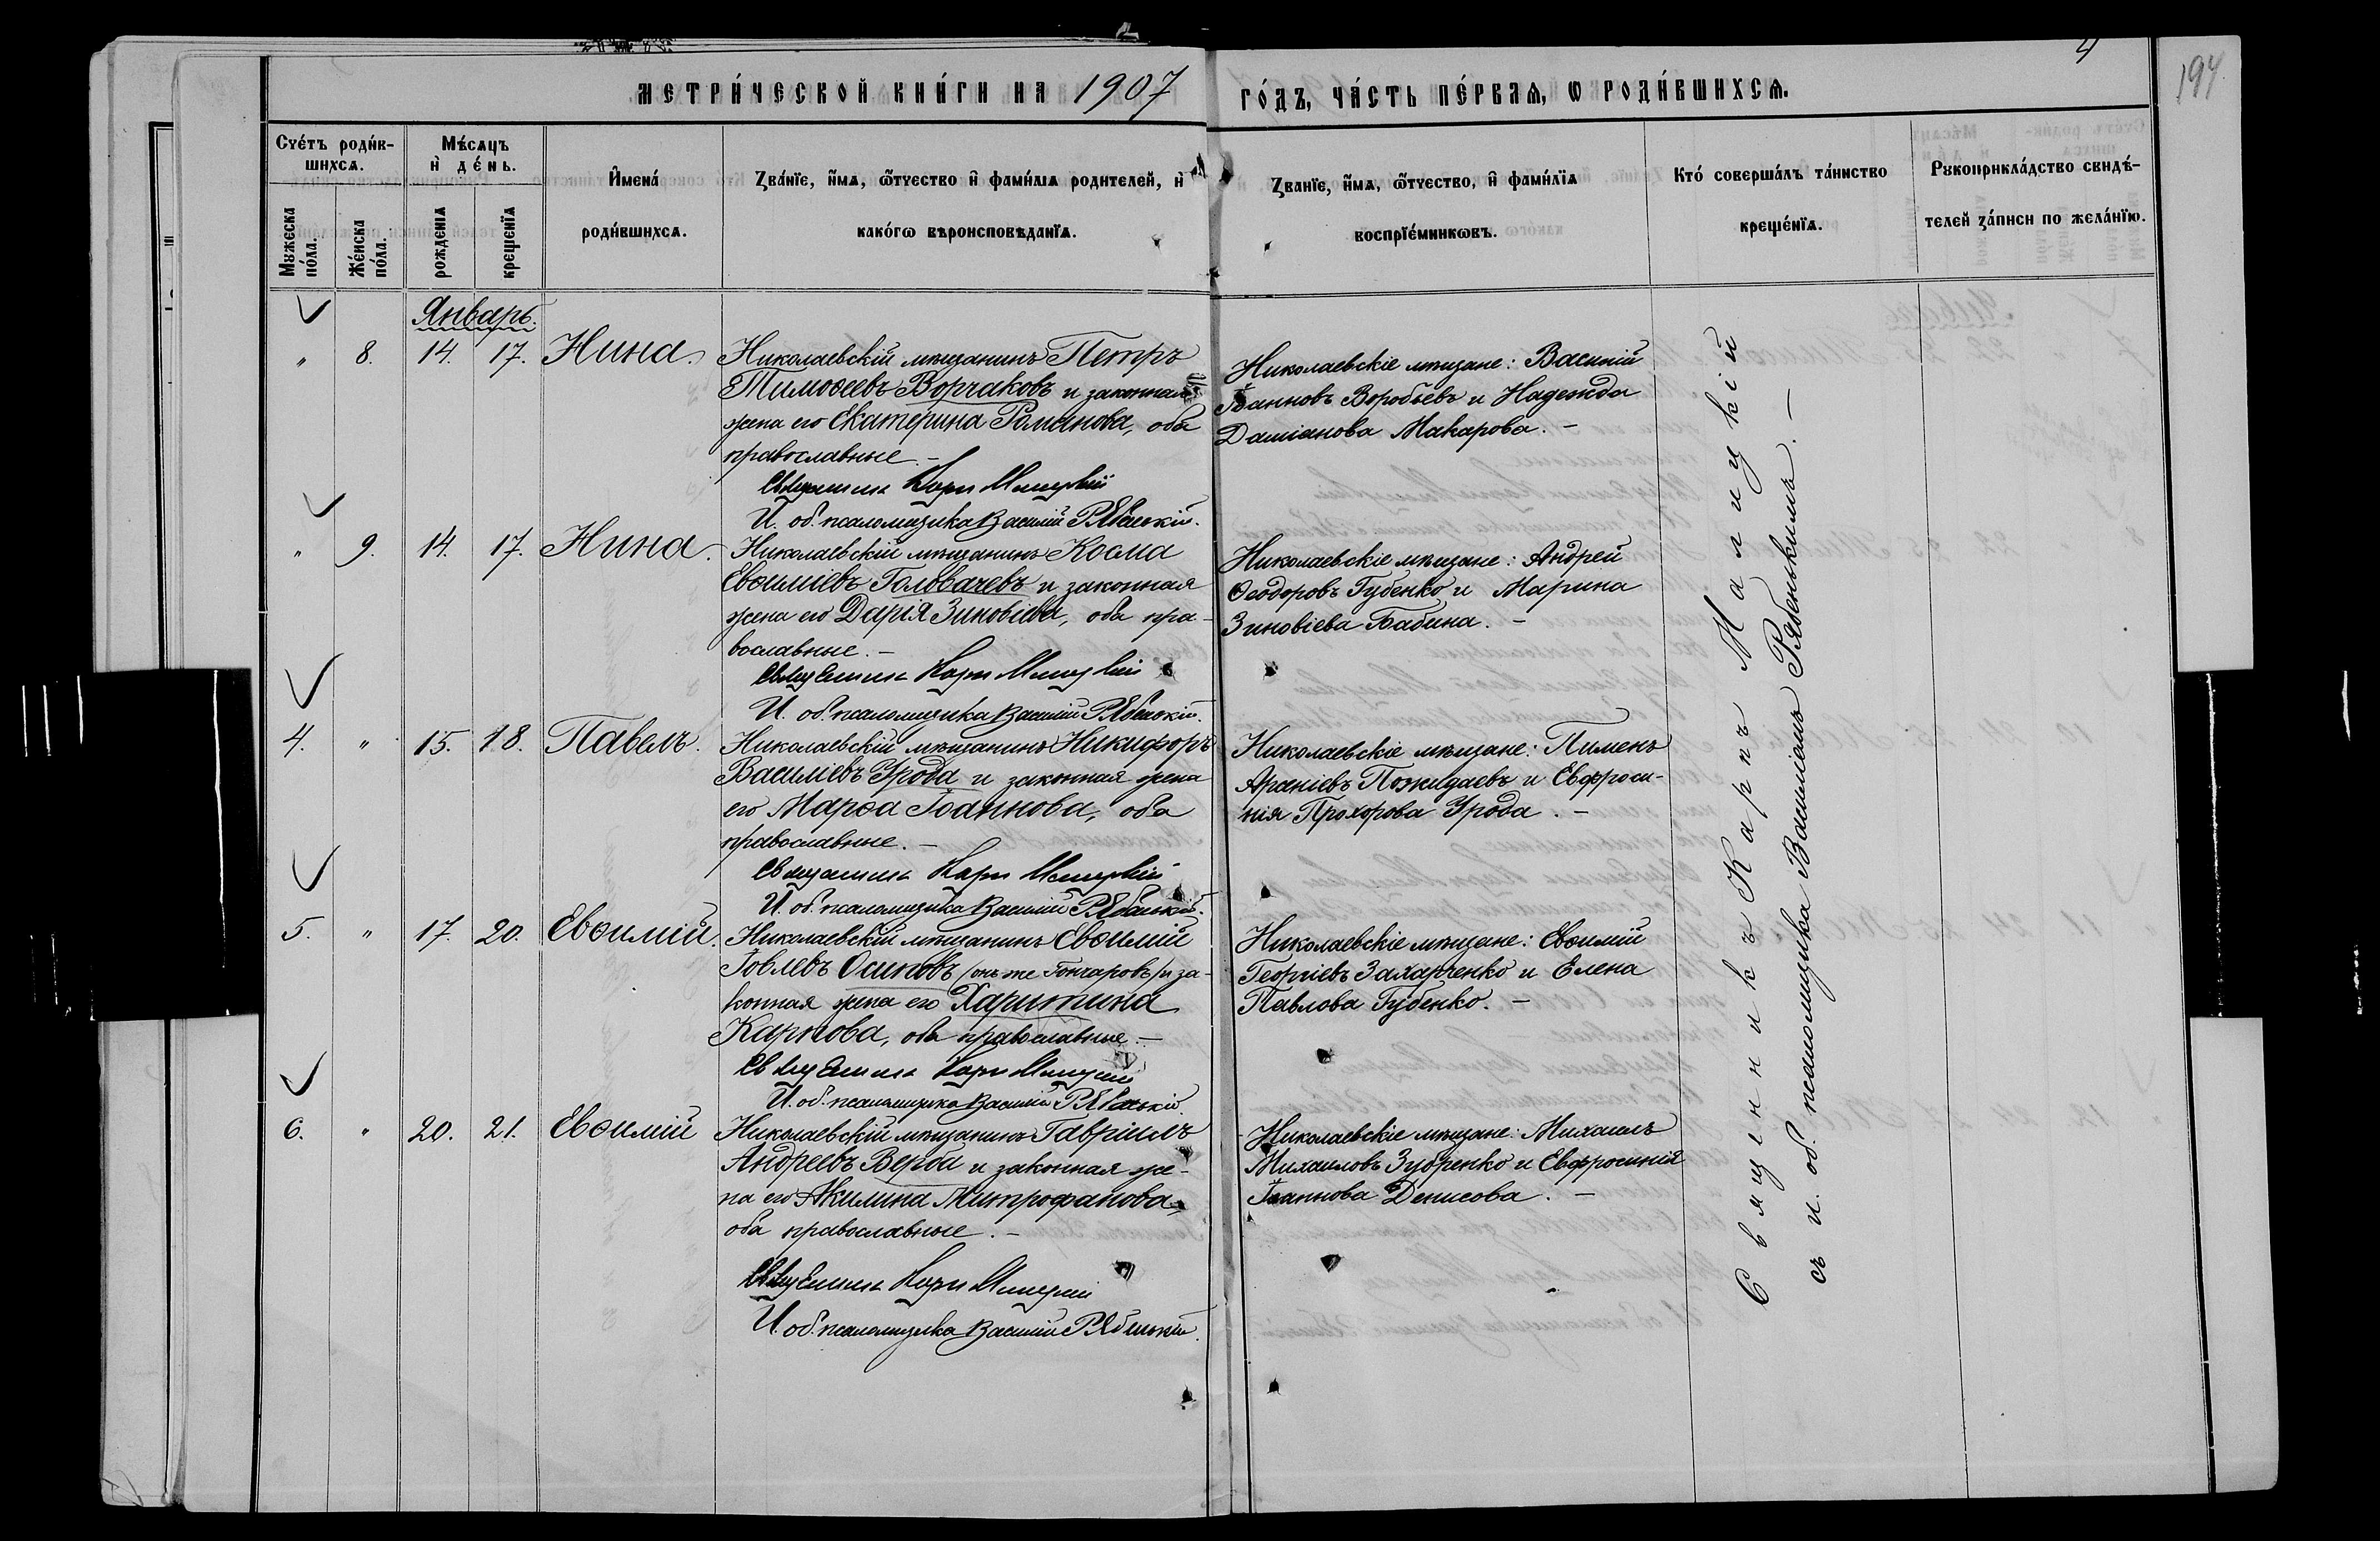 МЕТРИ́ЧЕСКОЙ КНИ́ГИ НА 1907
ГО́ДЪ, ЧА́СТЬ ПЕ́РВАѦ, Ѡ РОДИ́ВШИХСѦ.
4
194
Сче́тъ роди́в-
шихсѧ.
Мѣ́сѧцъ
и҆ де́нь.
Мꙋжеска
по́ла.
Же́нска
по́ла.
рожденїѧ
крещенїѧ
И҆мена́
роди́вшихсѧ.
Зва́нїе, и҆́мѧ, ѻ҆́тчество и҆ фами́лїѧ родителей, и҆
како́гѡ вѣроисповѣданїѧ.
Званїе, и҆́мѧ, ѻ҆́тчество, и҆ фами́лїѧ
воспрїе́мникѡвъ.
Кто́ соверша́лъ та́инство
креще́нїѧ.
Рꙋкоприкла́дство свидѣ́-
телей за́писи по жела́нїю.
Январь.
„ 8. 14. 17. Нина.
Николаевскій мѣщанинъ Петръ
Тимоѳеевъ Ворчаковъ и законная
жена его Екатерина Романова, оба
православные. –
Священникъ Карпъ Малицкій
И. об. псаломщика Василій Рябенькій.
Николаевскіе мѣщане: Василій
Іоанновъ Воробьевъ и Надежда
Даміанова Макарова. –
„ 9. 14. 17. Нина.
Николаевскій мѣщанинъ Косма
Евѳиміевъ Головачевъ и законная
жена его Дарія Зиновіева, оба пра-
вославные. –
Священникъ Карпъ Малицкій
И. об. псаломщика Василій Рябенькій.
Николаевскіе мѣщане: Андрей
Ѳеодоровъ Губенко и Марина
Зиновіева Бабина. –
4. „ 15. 18. Павелъ.
Николаевскій мѣщанинъ Никифоръ
Василіевъ Урода и законная жена
его Марѳа Іоаннова, оба
православные. –
Священникъ Карпъ Малицкій
И. об. псаломщика Василій Рябенькій.
Николаевскіе мѣщане: Пименъ
Арсеніевъ Пожидаевъ и Евфроси-
нія Прохорова Урода. –
5. „ 17. 20. Евѳимій.
Николаевскій мѣщанинъ Евѳимій
Іовлевъ Осиповъ /онъ же Гончаровъ/ и за-
конная жена его Харитина
Карпова, оба православные –
Священникъ Карпъ Малицкій
И. об. псаломщика Василій Рябенькій.
Николаевскіе мѣщане: Евѳимій
Георгіевъ Захарченко и Елена
Павлова Губенко. –
6. „ 20. 21. Евѳимій
Николаевскій мѣщанинъ Гавріилъ
Андреевъ Верба и законная же-
на его Акилина Митрофанова,
оба православные. –
Священникъ Карпъ Малицкій
И. об. псаломщика Василій Рябенькій.
Николаевскіе мѣщане: Михаилъ
Михаиловъ Зубренко и Евфросинія
Іоаннова Денисова. –
Священникъ Карпъ Малицкій
съ и. об. псаломщика Василіемъ Рябенькимъ. –